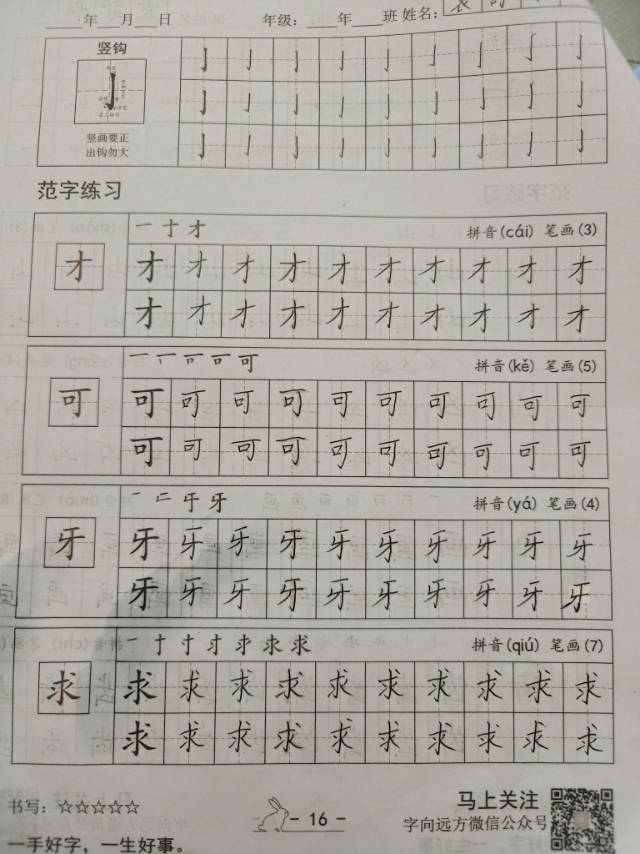 年 月 日 年级： 年 班 姓名：
竖钩
竖画要正
出钩勿大
亅 亅 亅 亅 亅 亅 亅 亅 亅
亅 亅 亅 亅 亅 亅 亅 亅 亅
亅 亅 亅 亅 亅 亅 亅 亅 亅
范字练习
一 十 才 拼音(cái) 笔画(3)
才
才 才 才 才 才 才 才 才 才 才
才 才 才 才 才 才 才 才 才 才
拼音(kě) 笔画(5)
可
可 可 可 可 可 可 可 可 可 可
可 可 可 可 可 可 可 可 可 可
拼音(yá) 笔画(4)
牙
牙 牙 牙 牙 牙 牙 牙 牙 牙 牙
牙 牙 牙 牙 牙 牙 牙 牙 牙 牙
拼音(qiú) 笔画(7)
求
求 求 求 求 求 求 求 求 求 求
求 求 求 求 求 求 求 求 求 求
书写：☆☆☆☆☆
一手好字，一生好事。
- 16 -
马上关注
字向远方微信公众号